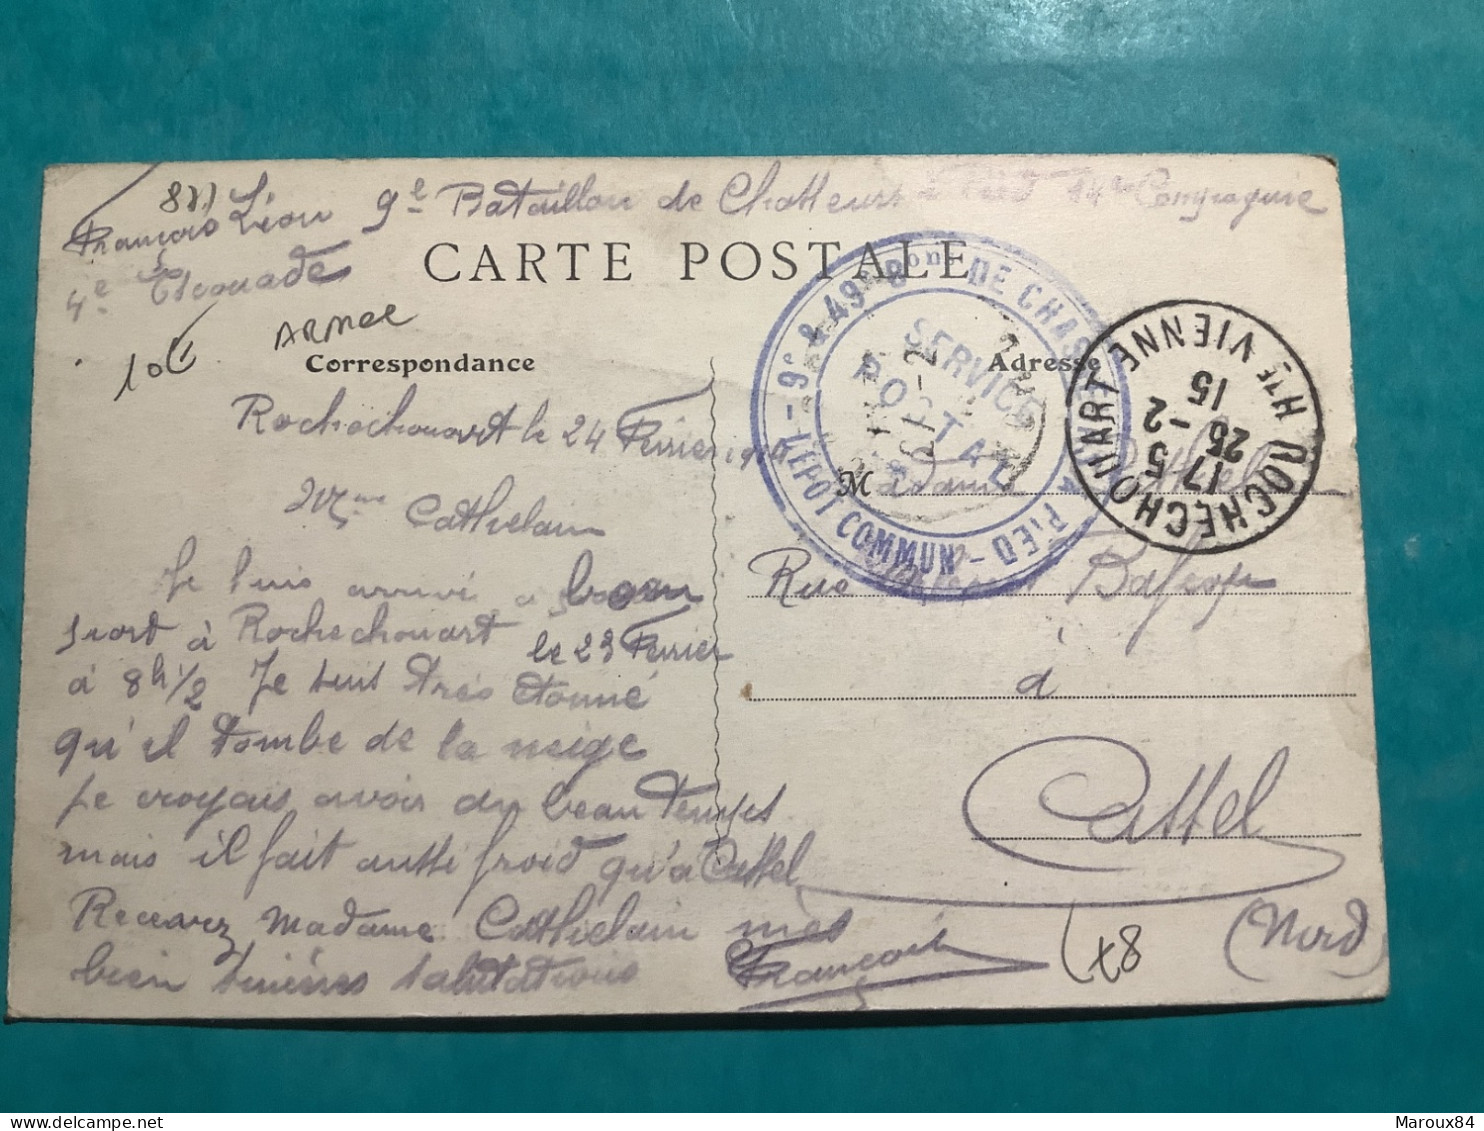 87)
François Léon 9e Bataillon de Chasseurs à Pied 14e Compagnie
4e Escouade
CARTE POSTALE
10€ ARMEE
Correspondance
Adresse
9e & 49e Bons DE CHASSEURS A PIED - DEPOT COMMUN -
SERVICE
POSTAL
ROCHECHOUART HTE VIENNE
17 5
25 -2
15
Rochechouart le 24 Fevrier 1915
Mme Cathelain
Je suis arrivé à bon
port à Rochechouart le 23 Fevrier
à 8h1/2 Je suis très étonné
qu'il tombe de la neige
Je croyais avoir du beau temps
mais il fait aussi froid qu'à Cassel
Recevez Madame Cathelain mes
bien sincères salutations François
Madame Cathelain
Rue
à
Cassel
(Nord)
x8
Maroux84